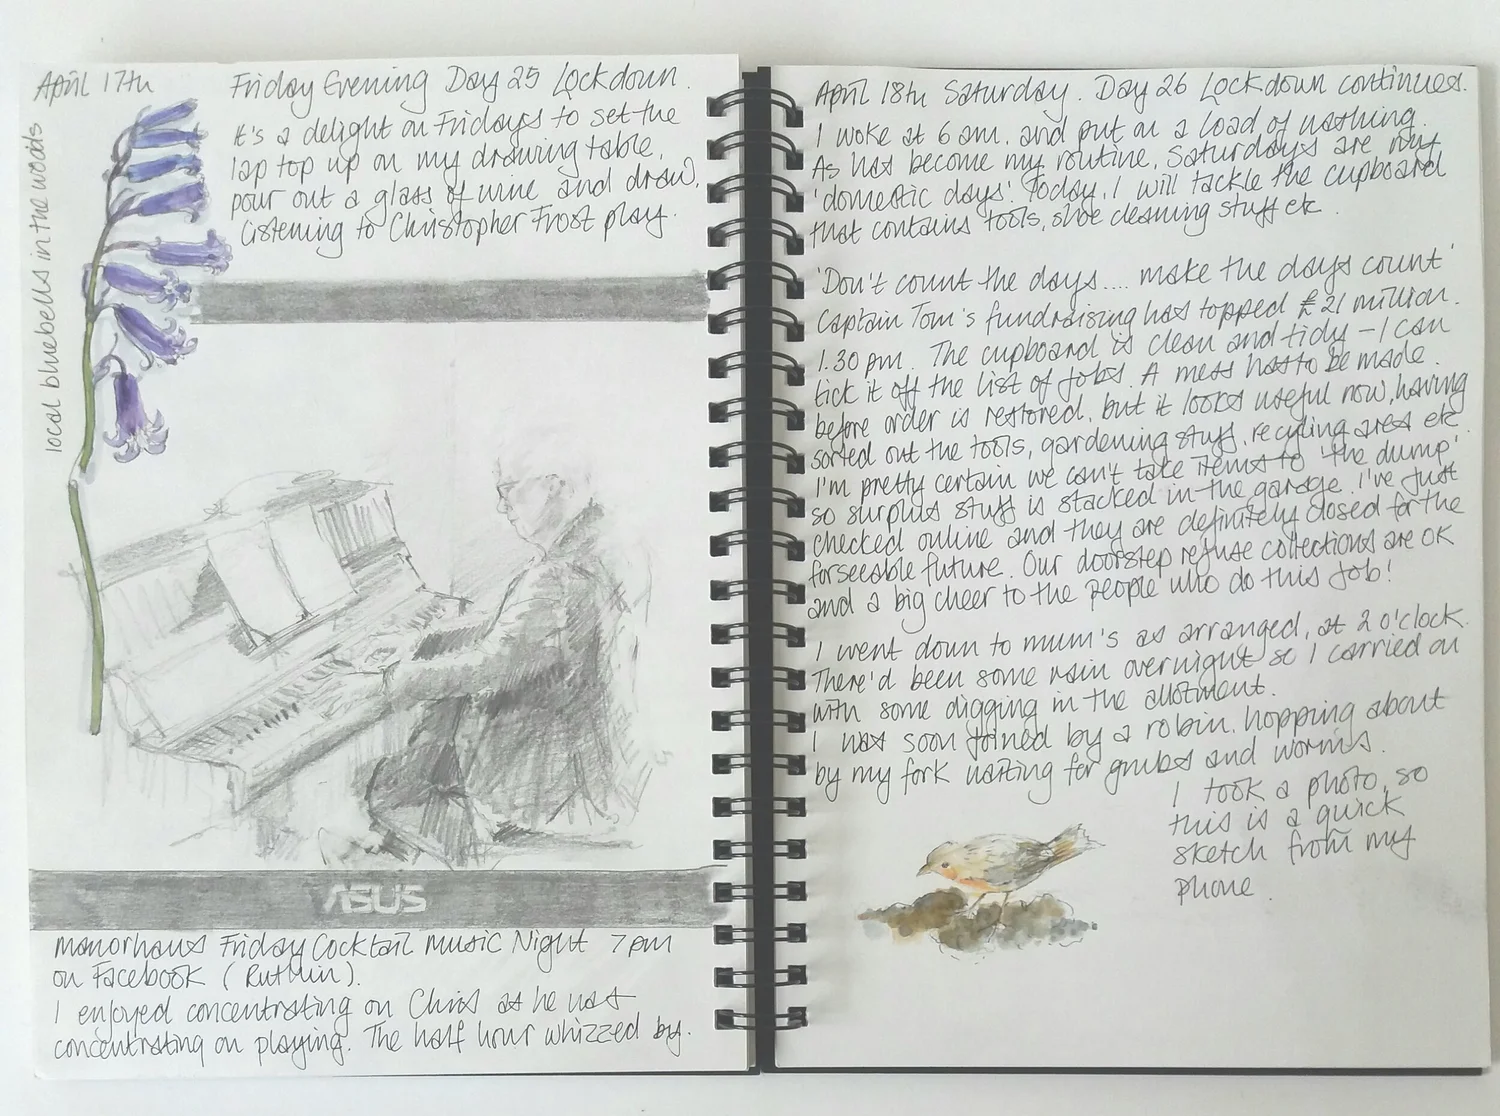 April 17th
local bluebells in the woods
Friday Evening Day 25 Lockdown.
It's a delight on Fridays to set the
lap top up on my drawing table,
pour out a glass of wine and draw,
listening to Christopher Frost play.
ASUS
manorhaus Friday Cocktail music Night 7pm
on Facebook (Ruthin).
I enjoyed concentrating on Chris as he was
concentrating on playing. The half hour whizzed by.
April 18th Saturday. Day 26 Lockdown continues.
I woke at 6am. and put on a load of washing.
As has become my routine, Saturdays are my
'domestic days'. Today, I will tackle the cupboard
that contains tools, shoe cleaning stuff etc.
'Don't count the days.... make the days count'
Captain Tom's fundraising has topped £21 million.
1.30 pm. The cupboard is clean and tidy - I can
tick it off the list of jobs. A mess has to be made
before order is restored, but it looks useful now, having
sorted out the tools, gardening stuff, recycling area etc
I'm pretty certain we can't take items to 'the dump'
so surplus stuff is stacked in the garage. I've just
checked online and they are definitely closed for the
forseeable future. Our doorstep refuse collections are OK
and a big cheer to the people who do this job!
I went down to mum's as arranged, at 2 o'clock.
There'd been some rain overnight so I carried on
with some digging in the allotment.
I was soon joined by a robin, hopping about
by my fork waiting for grubs and worms.
I took a photo, so
this is a quick
sketch from my
phone.